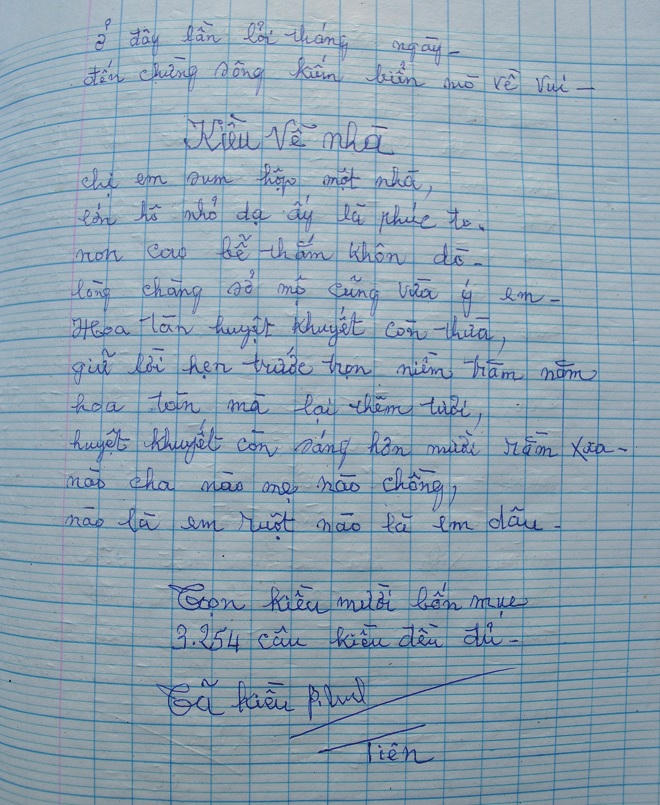 ở đây lần lỏi tháng ngày -
đến chừng sông kiến biển mò về vui -
Kiều Về nhà
chị em sum hộp một nhà,
lớn hô nhỏ dạ ấy là phúc to.
non cao bể thẳm khôn dò -
lòng chàng sở mộ cũng vừa ý em -
Hoa tàn huyệt khuyết còn thừa,
giữ lời hẹn trước trọn niềm trăm năm
hoa tàn mà lại thêm tươi,
huyệt khuyết còn sáng hơn mười rằm xưa -
nào cha nào mẹ nào chồng,
nào là em ruột nào là em dâu -
Trọn kiều mười bốn mục
3.254 câu kiều đều đủ -
Tả kiều
Tiên